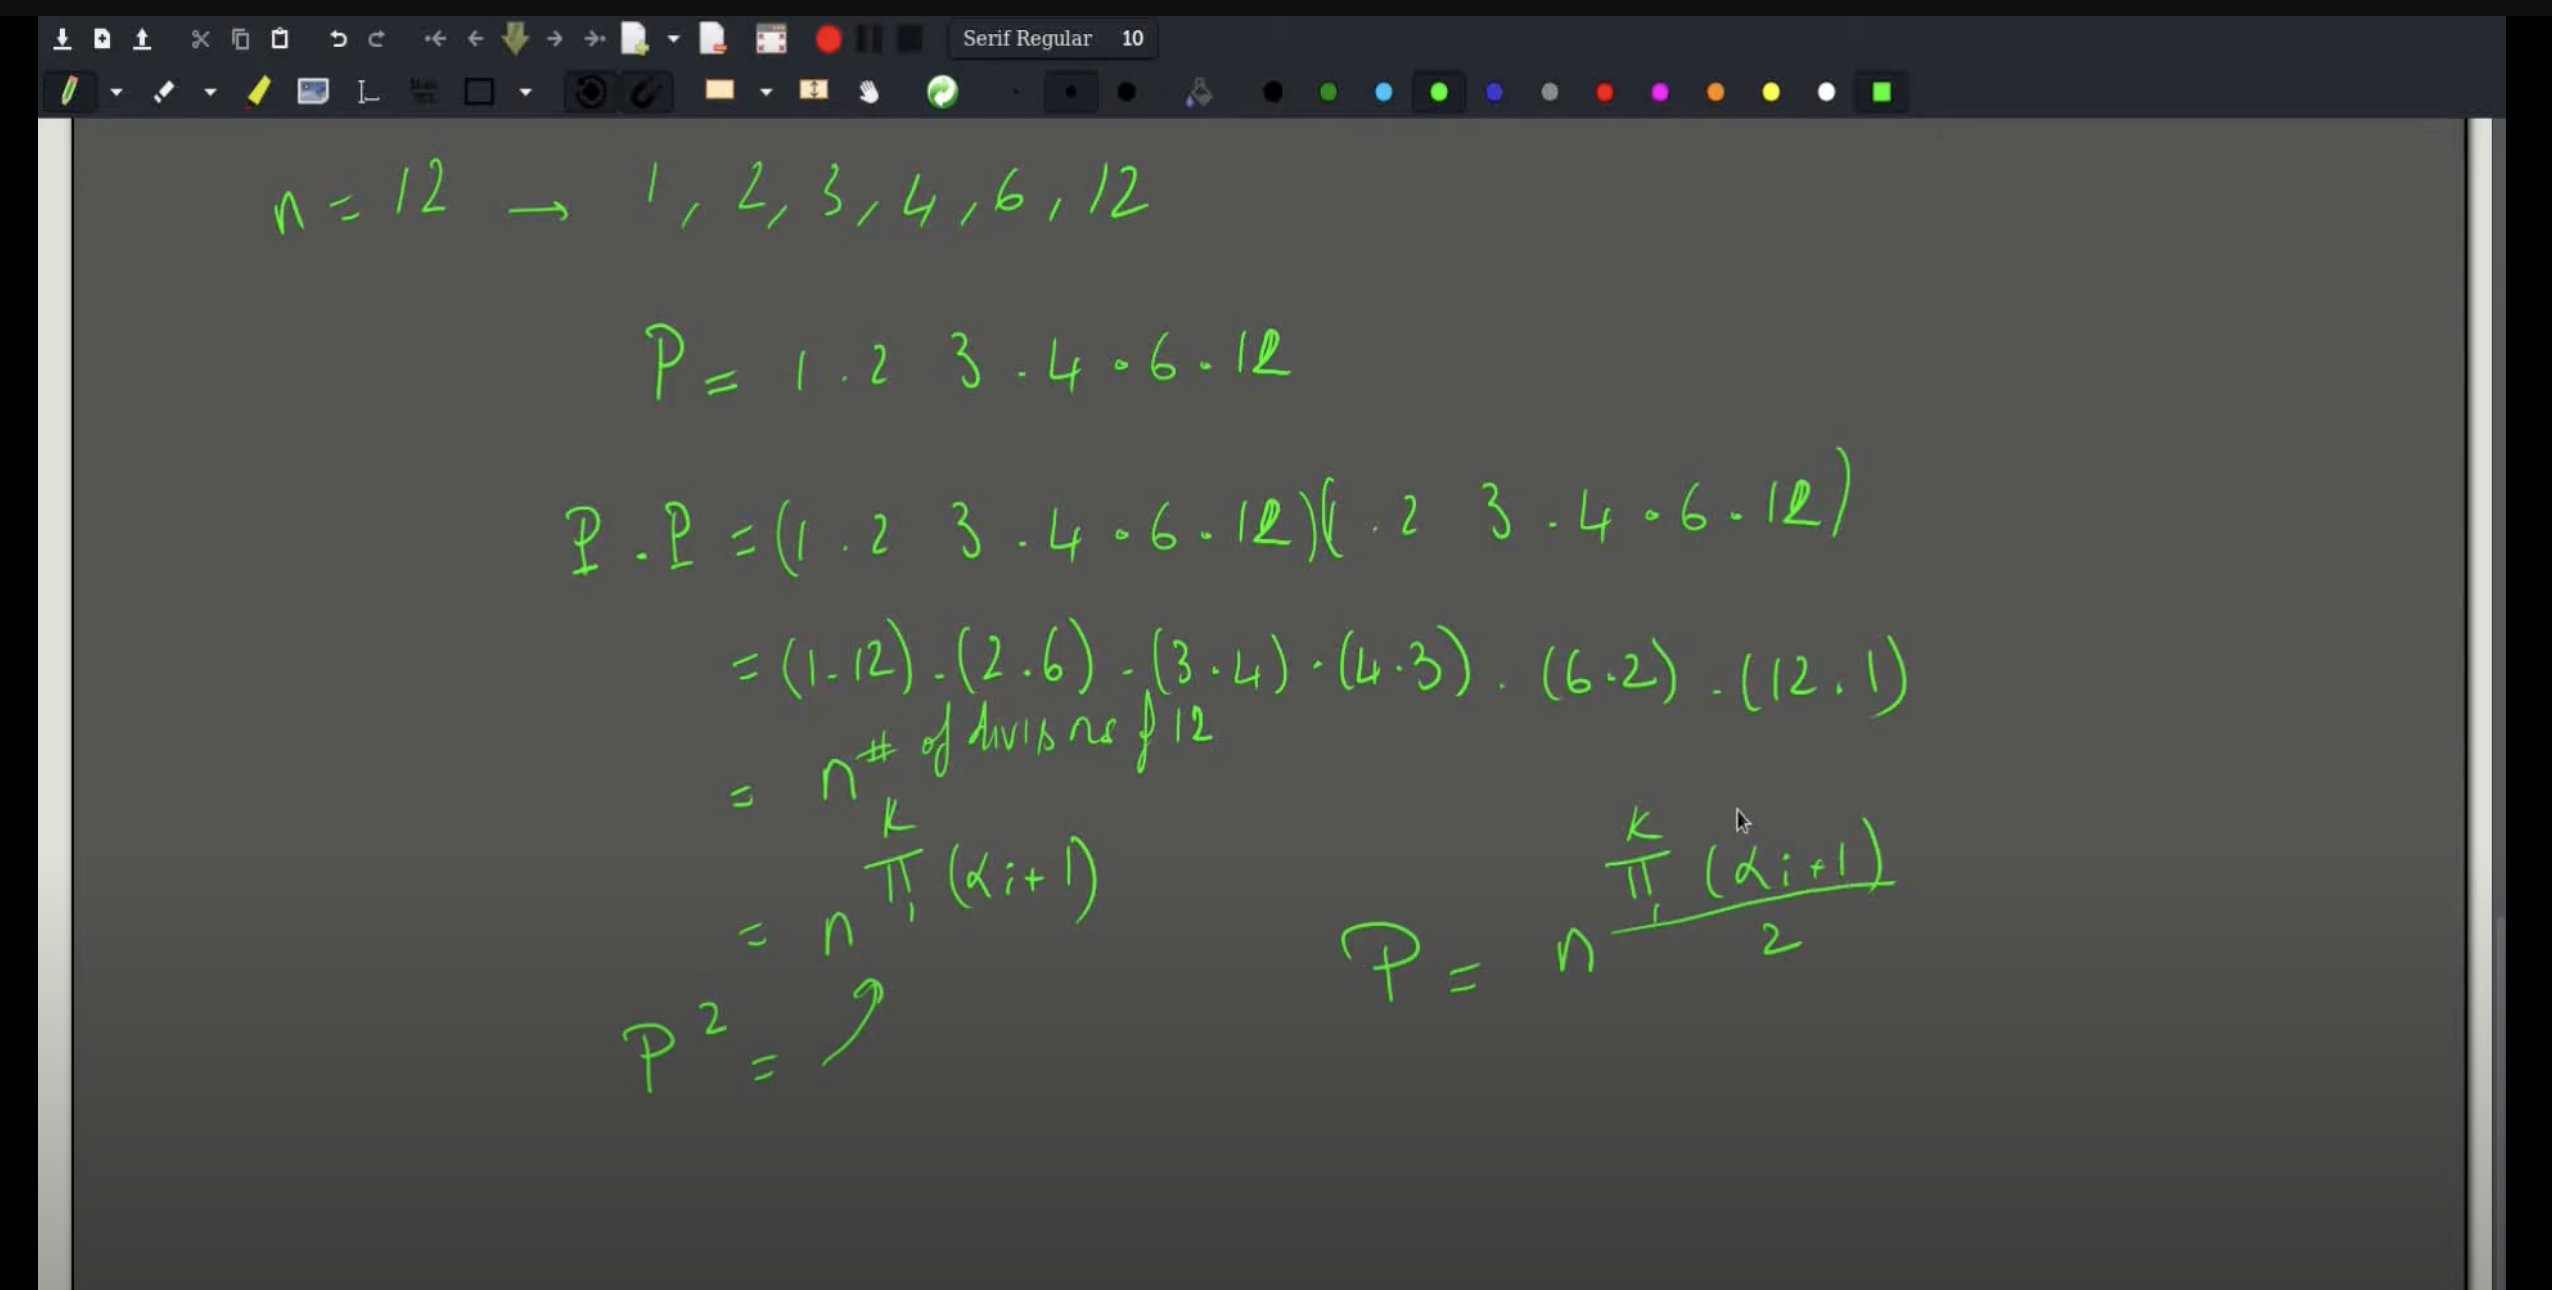 Serif Regular 10
n = 12 → 1, 2, 3, 4, 6, 12
P = 1 . 2 3 . 4 . 6 . 12
P . P = (1 . 2 3 . 4 . 6 . 12)(1 . 2 3 . 4 . 6 . 12)
= (1 . 12) . (2 . 6) . (3 . 4) . (4 . 3) . (6 . 2) . (12 . 1)
= n^{# of 12}
= n^{∏_{1}^{k} (αi + 1)}
P² =
P = n^{∏_{1}^{k} (αi + 1) / 2}